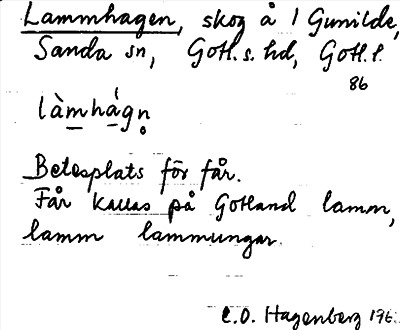 Lammhagen, skog å 1 Gunilde,
Sanda sn, Gotl. s. hd, Gotl. l.
86
làmhágn̥
Betesplats för får.
Får kallas på Gotland lamm,
lamm lammungar.
C.O. Hagenberg 196